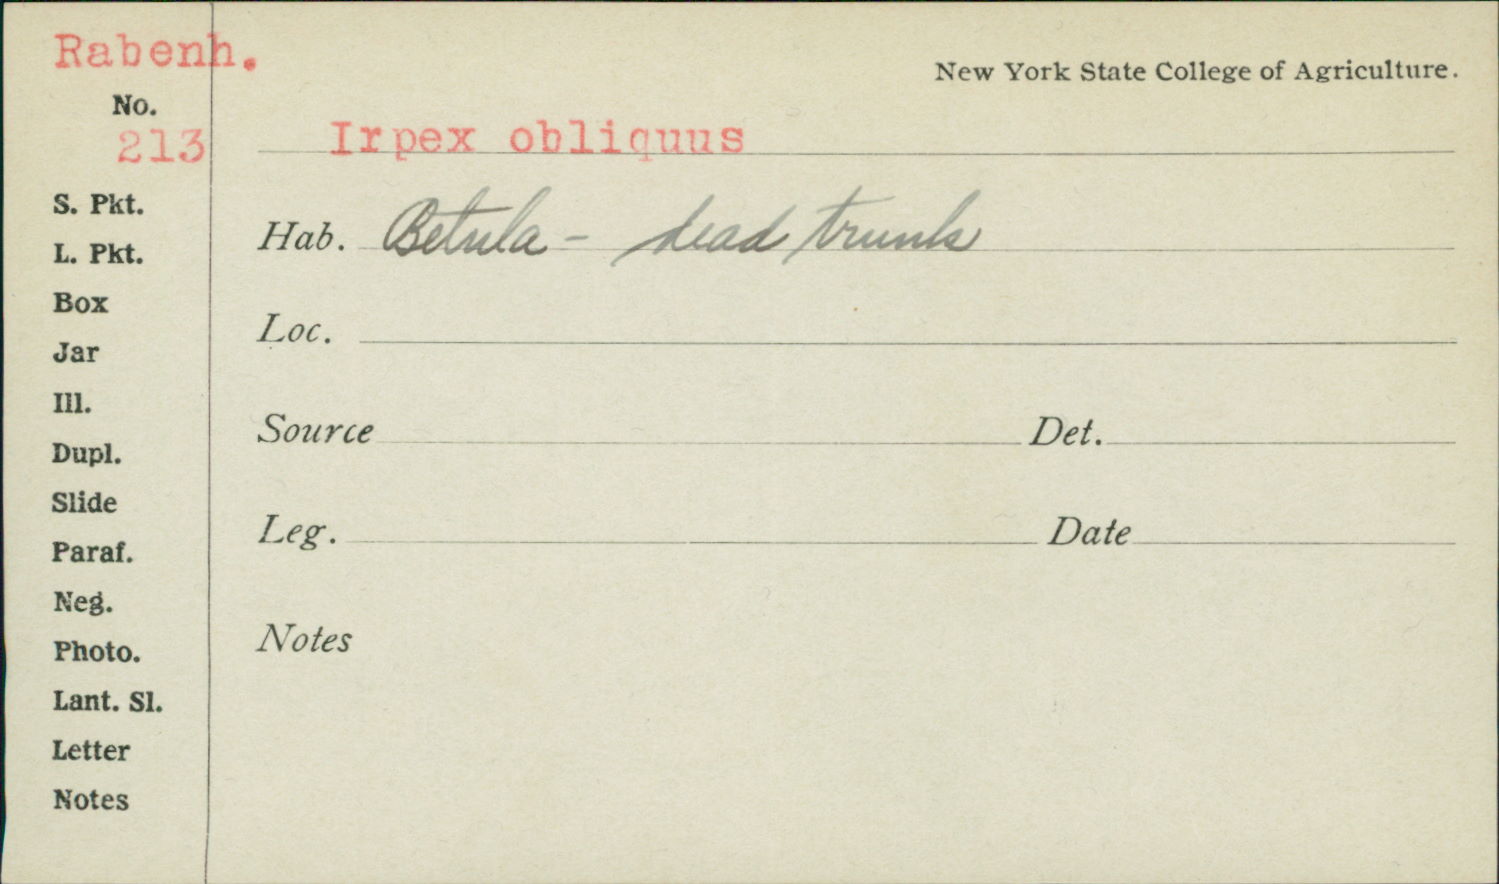 Rabenh.
New York State College of Agriculture.
No.
213
Irpex obliquus
S. Pkt.
Hab. Betula - dead trunk
L. Pkt.
Box
Loc.
Jar
Ill.
Source Det.
Dupl.
Slide
Leg. Date
Paraf.
Neg.
Notes
Photo.
Lant. Sl.
Letter
Notes